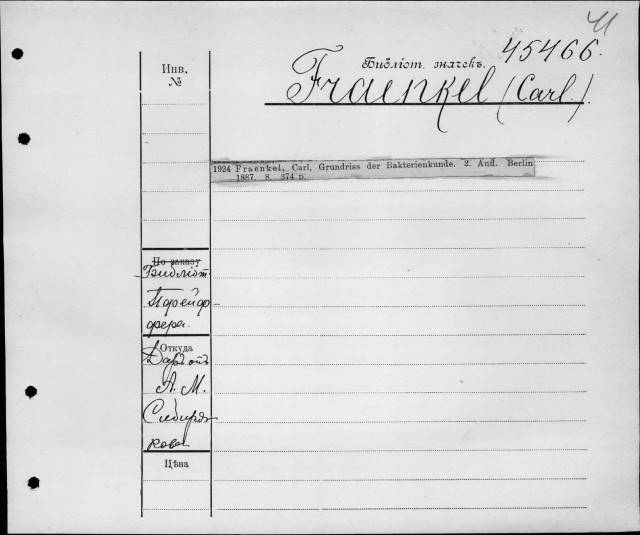 41
Библіот. значекъ. 45466.
Fraenkel (Carl.).
Инв.
№
1924 Fraenkel, Carl. Grundriss der Bakterienkunde. 2. Aufl. Berlin
1887. 8. 374 p.
По заказу
Библіот.
Пфейф-
фера.
Откуда
Даръ отъ
А. М.
Сибиря-
кова
Цѣна